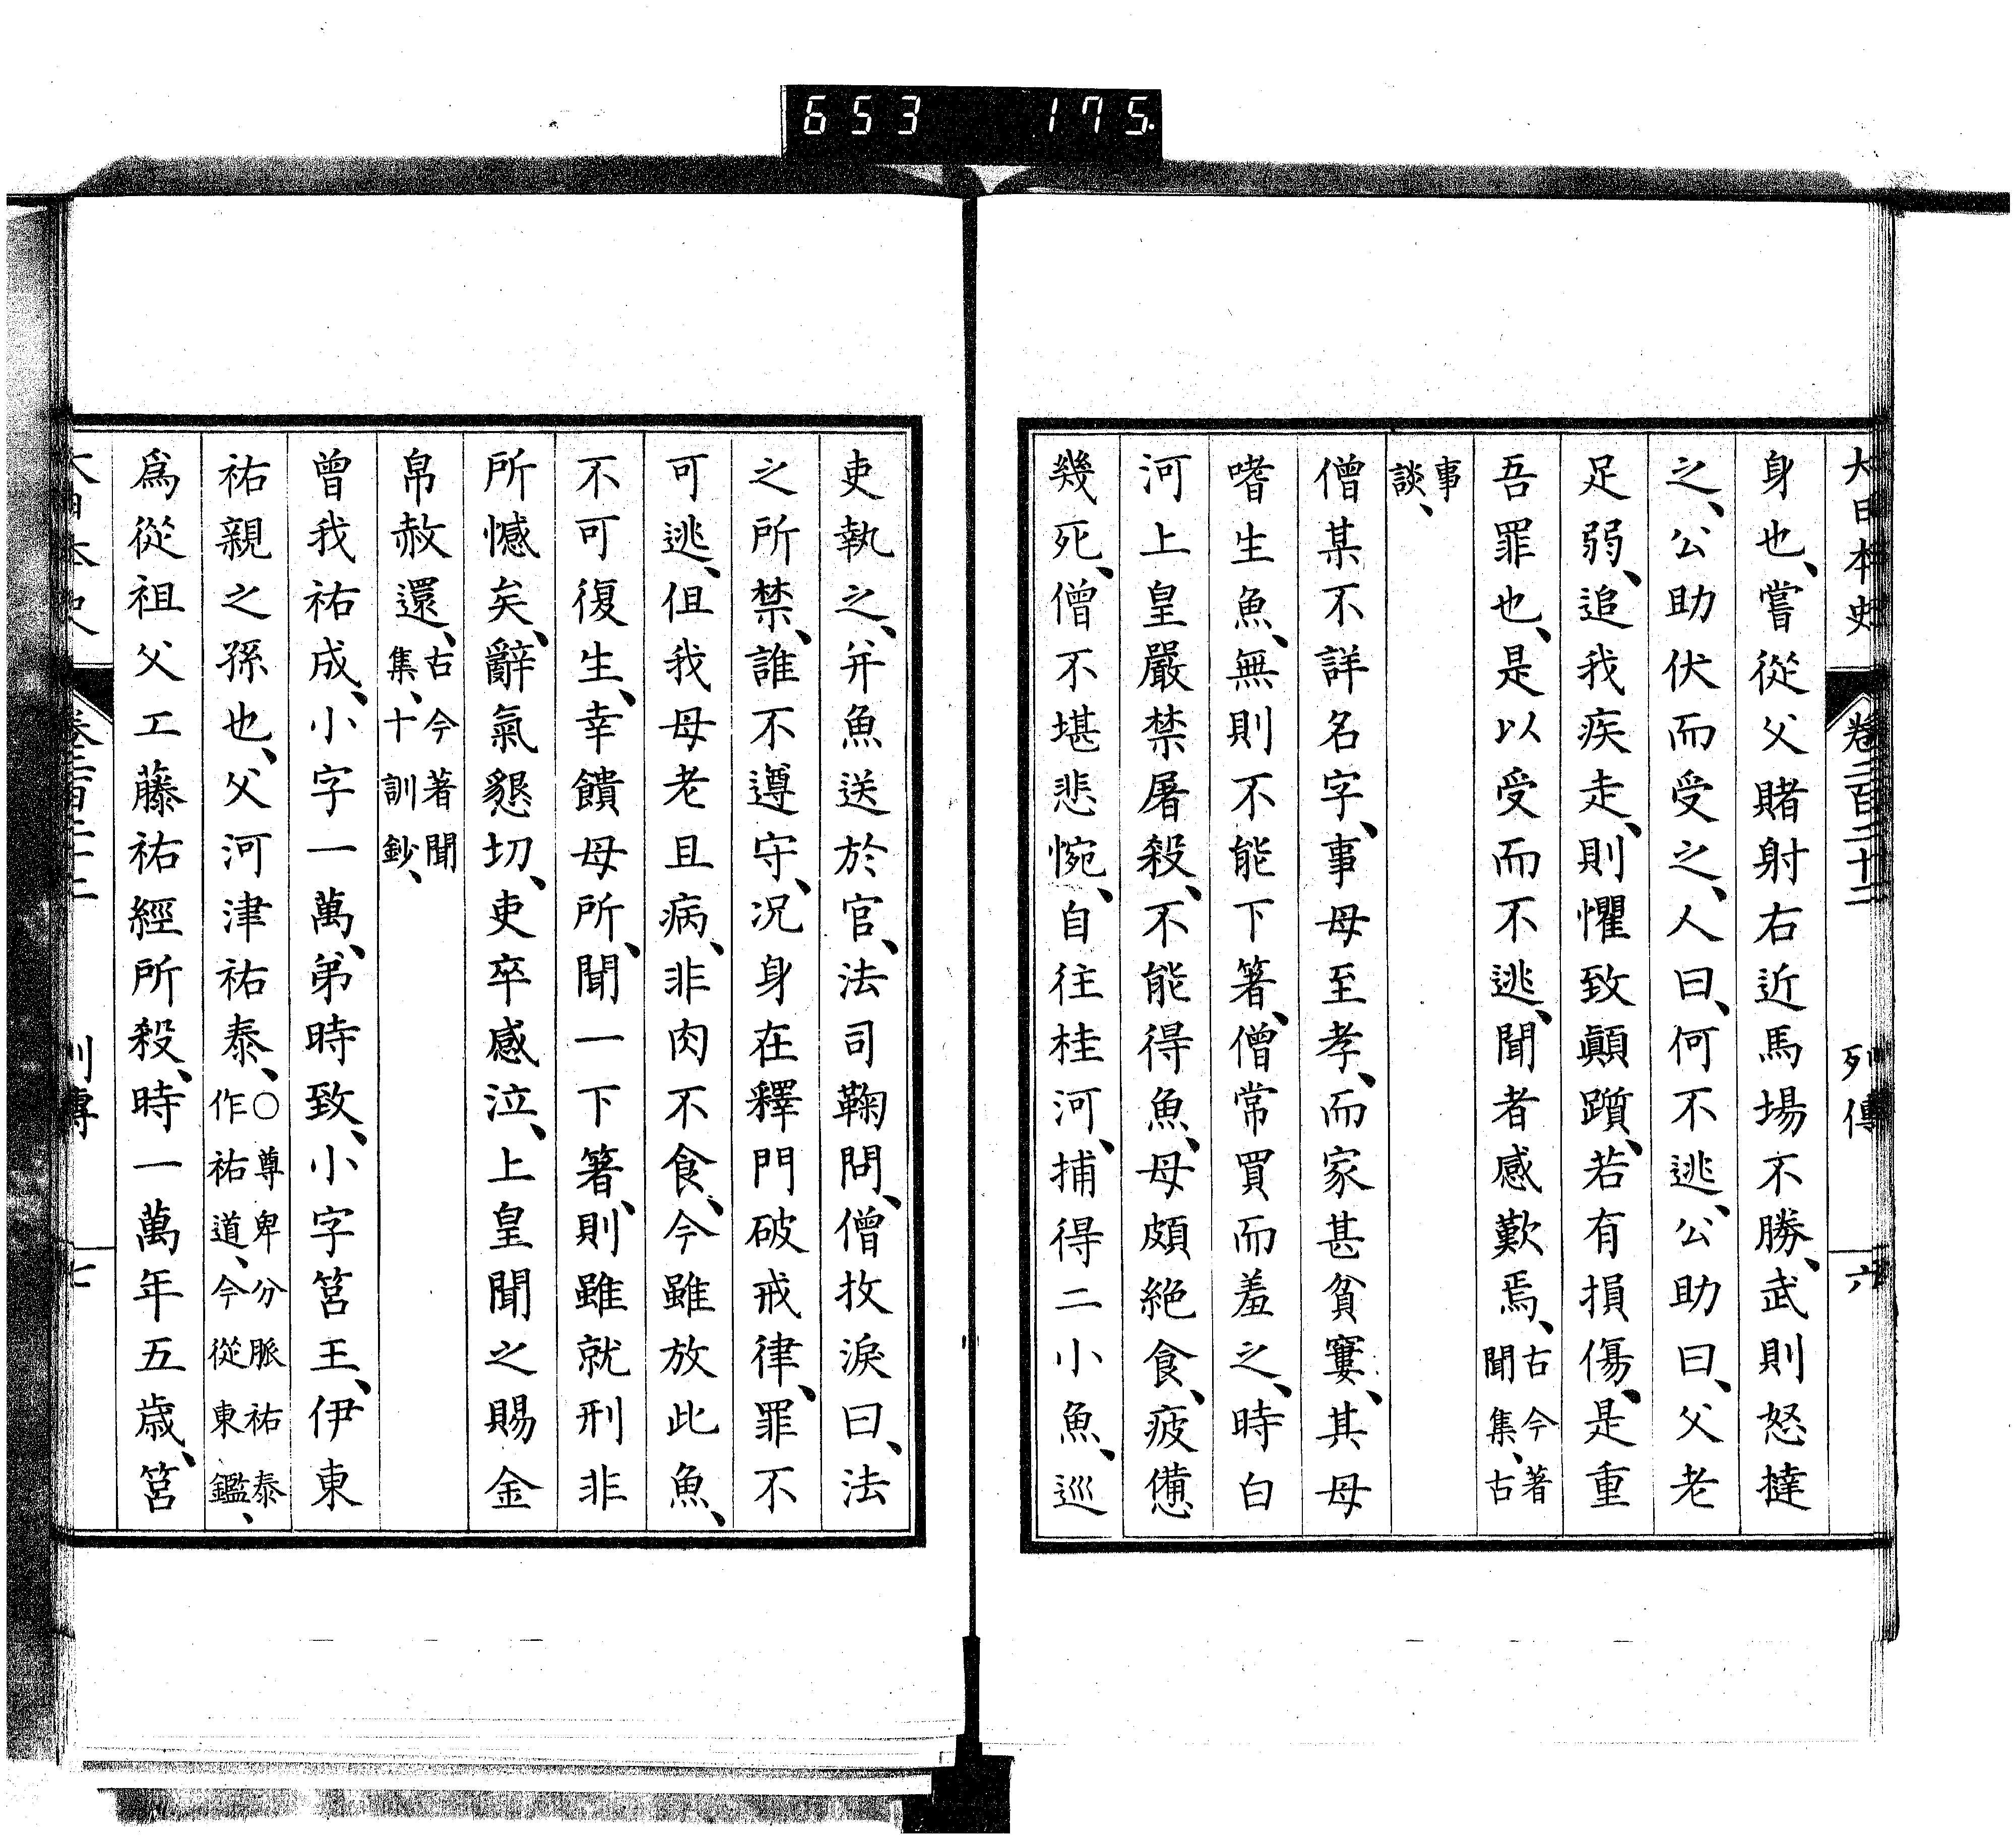 653 175.
大日本史 卷二百二十二 列傳 六
身也、嘗從父賭射右近馬場不勝、武則怒撻
之、公助伏而受之、人曰、何不逃、公助曰、父老
足弱、追我疾走、則懼致顚躓、若有損傷、是重
吾罪也、是以受而不逃、聞者感歎焉、古今著聞集、古
事談、
僧某不詳名字、事母至孝、而家甚貧窶、其母
嗜生魚、無則不能下箸、僧常買而羞之、時白
河上皇嚴禁屠殺、不能得魚、母頗絶食、疲憊
幾死、僧不堪悲惋、自往桂河、捕得二小魚、巡
吏執之、并魚送於官、法司鞠問、僧抆淚曰、法
之所禁、誰不遵守、况身在釋門破戒律、罪不
可逃、但我母老且病、非肉不食、今雖放此魚、
不可復生、幸饋母所、聞一下箸、則雖就刑非
所憾矣、辭氣懇切、吏卒感泣、上皇聞之賜金
帛赦還、古今著聞集、十訓鈔、
曾我祐成、小字一萬、弟時致、小字筥王、伊東
祐親之孫也、父河津祐泰、○尊卑分脈祐泰作祐道、今從東鑑、
爲從祖父工藤祐經所殺、時一萬年五歳、筥
大日本史 卷二百二十二 列傳 七